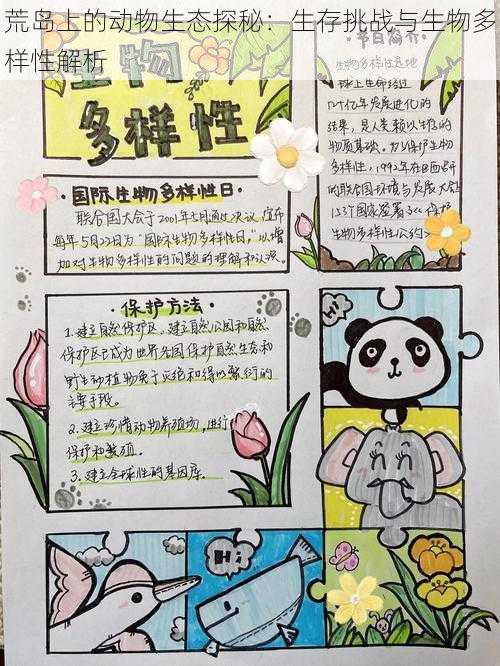 荒岛上的动物生态探秘：生存挑战与生物多
样性解析
生物
多样性
节日简介
生物多样性是地
球上生命经过
几十亿年发展进化的
结果，是人类赖以生存的
物质基础。为了保护生物
多样性，1992年在巴西召开
的联合国环境与发展大会上
153个国家签署了《保护
生物多样性公约》
·国际生物多样性日·
联合国大会于2001年5月通过决议，宣布
每年5月22日为"国际生物多样性日"，以增
加对生物多样性的问题的理解和认识。
·保护方法·
1.建立自然保护区。建立自然公园和自然
保护区已成为世界各国保护自然生态和
野生动植物免于灭绝和得以繁衍的
主要手段。
2.建立珍惜动物养殖场，进行
保护和繁殖。
3.建立全球性的基因库。
Hi